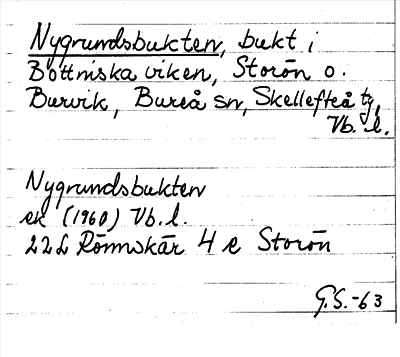 Nygrundsbukten, bukt i
Bottniska viken, Storön o.
Burvik, Bureå sn, Skellefteå tg,
Vb. l.
Nygrundsbukten
ek (1960) Vb. l.
22L Rönnskär 4 e Storön
G.S.-63